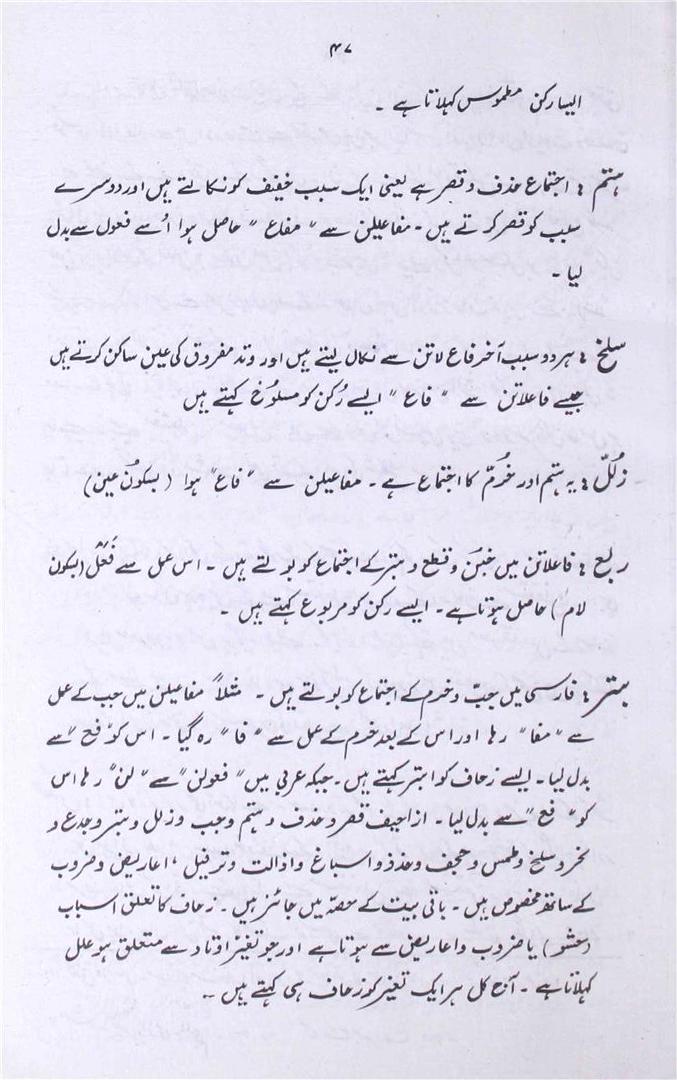 ۴۷
ایسا رکن مطموس کہلاتا ہے ۔
ہتم : اجتماع حذف و قصر ہے یعنی ایک سبب خفیف کو نکالتے ہیں اور دوسرے
سبب کو قصر کرتے ہیں ۔ مفاعیلن سے " مفاع " حاصل ہوا اُسے فعول سے بدل
لیا ۔
سلخ : ہر دو سبب آخر فاع لاتن سے نکال لیتے ہیں اور وتد مفروق کی عین ساکن کرتے ہیں
جیسے فاعلاتن سے " فاع " ایسے رُکن کو مسلوُخ کہتے ہیں
زلَل : یہ ہتم اور خرم کا اجتماع ہے ۔ مفاعیلن سے " فاع " ہوا ( بسکون عین )
ربع : فاعلاتن میں خبن و قطع و بتر کے اجتماع کو بولتے ہیں ۔ اس عمل سے فَعَل (بسکون
لام ) حاصل ہوتا ہے ۔ ایسے رکن کو مربوع کہتے ہیں
بتر : فارسی میں جبّ و خرم کے اجتماع کو بولتے ہیں ۔ مثلاً مفاعیلن میں جب کے عمل
سے " مفا " رہا اور اس کے بعد خرم کے عمل سے " فا " رہ گیا ۔ اس کو " فع " سے
بدل لیا ۔ ایسے زحاف کو ابتر کہتے ہیں ۔ جبکہ عربی میں " فعولن " سے " لن " رہا اس
کو " فع " سے بدل لیا ۔ ازاحیف قصر و حذف و ہتم وجب و زلل و بتر و جدع و
نحر و سلخ و طمس و جحف و حذذ و اسباغ و اذالت و ترفیل ، اعاریض و ضروب
کے ساتھ مخصوص ہیں ۔ باقی بیت کے حصّہ میں جائز ہیں ۔ زحاف کا تعلق اسباب
(حشو) یا ضروب و اعاریض سے ہوتا ہے اور جو تغیّر اوتاد سے متعلق ہو علل
کہلاتا ہے ۔ آج کل ہر ایک تغیّر کو زحاف ہی کہتے ہیں ۔